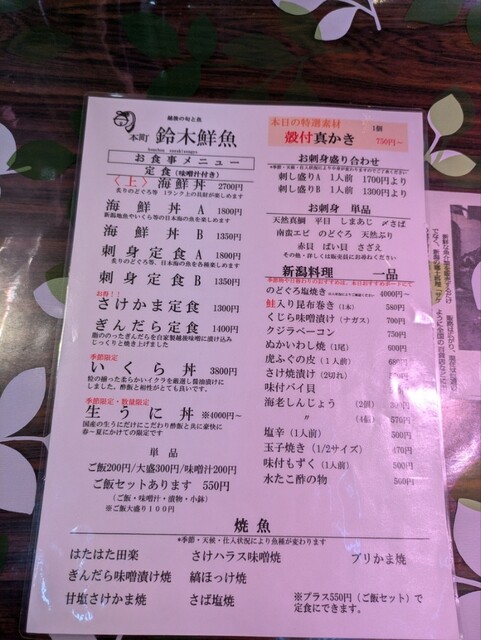 越後の旬と魚
本町 鈴木鮮魚
お食事メニュー
定食(味噌汁付き)
〈上〉海鮮丼 2700円
炙りのどぐろ等 1ランク上の具材が楽しめます
海鮮丼 A 1800円
新潟地魚やいくら等の日本海の魚を楽しめます
海鮮丼 B 1350円
刺身定食A 1800円
炙りのどぐろ等、日本海の魚を各種楽しめます
刺身定食B 1350円
お得!!
さけかま定食 1300円
ぎんだら定食 1400円
脂ののったぎんだらを自家製越後味噌に漬け込み
じっくりと焼き上げました
季節限定
いくら丼 3800円
粒の揃った柔らかいイクラを厳選し醤油漬けに
しました。酢飯と相性がとても良いです。
季節限定・数量限定
生うに丼 ※4000円~
国産の生うにだけにこだわり酢飯と共に豪快に
春~夏にかけての限定です
単品
ご飯200円/大盛300円/味噌汁200円
ご飯セットあります 550円
(ご飯・味噌汁・漬物・小鉢)
※ご飯大盛り100円
本日の特選素材
殻付真かき 1個 750円~
お刺身盛り合わせ
刺し盛りA 1人前 1700円より
刺し盛りB 1人前 1300円より
お刺身 単品
天然真鯛 平目 しまあじ 〆さば
南蛮エビ のどぐろ 天然ぶり
赤貝 ばい貝 さざえ
その他・詳しくは販売員にお尋ねください
新潟料理 一品
季節物や日替わりのおすすめは、本日おすすめボードにて
のどぐろ塩焼き 4000円~
鮭入り昆布巻き(1本) 580円
くじら味噌漬け(ナガス) 700円
クジラベーコン 750円
ぬかいわし焼(1尾) 600円
虎ふぐの皮(1人前) 680円
さけ焼漬け(2切れ)
味付バイ貝
海老しんじょう (2個)
〃 (4個) 570円
塩辛(1人前) 500円
玉子焼き(1/2サイズ) 470円
味付もずく(1人前) 500円
水たこ酢の物 500円
焼魚
*季節・天候・仕入状況により魚種が変わります
はたはた田楽 さけハラス味噌焼 ブリかま焼
ぎんだら味噌漬け焼 縞ほっけ焼
甘塩さけかま焼 さば塩焼
※プラス550円(ご飯セット)で
定食にできます。